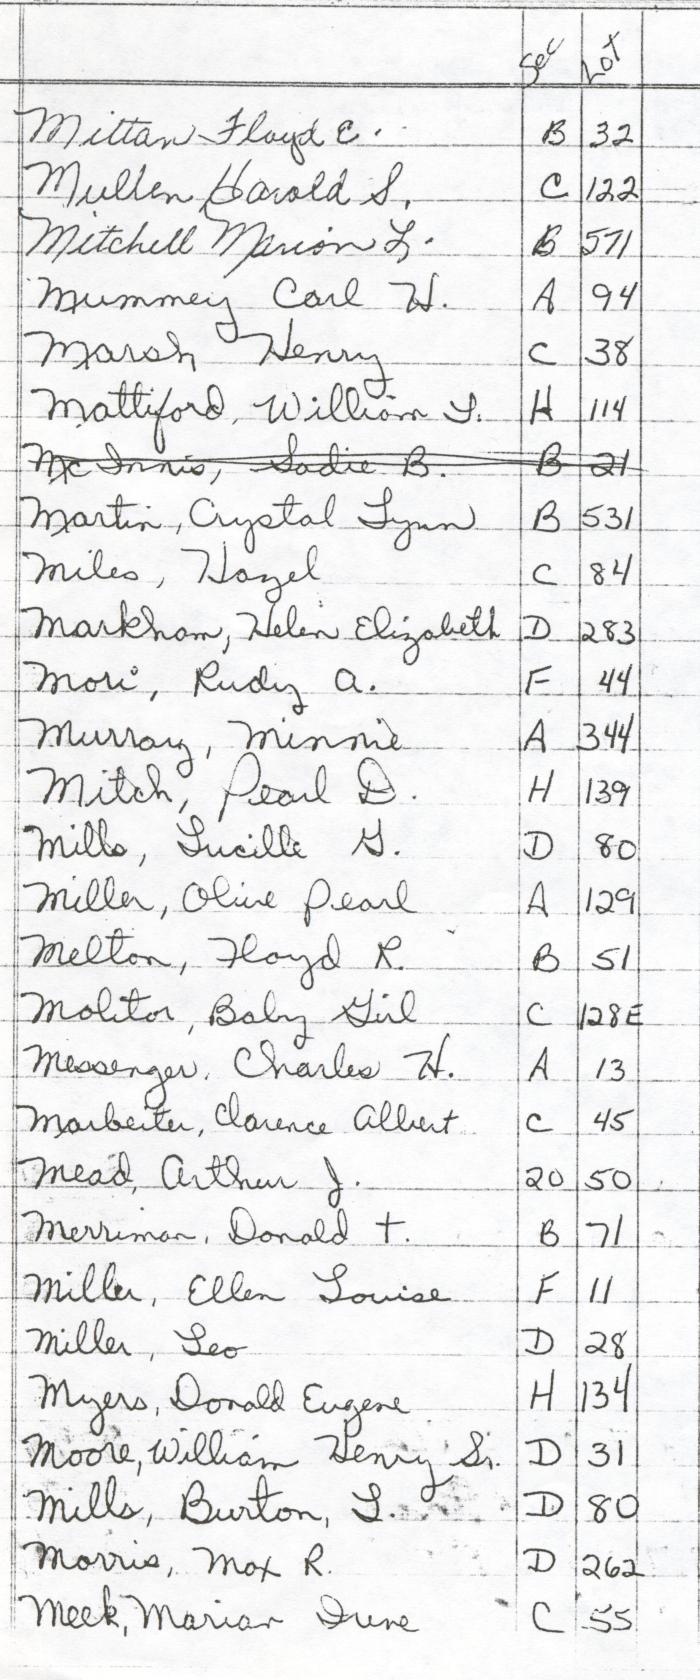 Sec Lot
Mittan Floyd E. B 32
Mullen Harold S. C 122
Mitchell Marion L. B 571
Mummey Carl H. A 94
Marsh Henry C 38
Mattiford, William L. H 114
McInnis, Sadie B. B 21
Martin, Crystal Lynn B 531
Miles, Hazel C 84
Markham, Helen Elizabeth D 283
Mori, Rudy A. F 44
Murray, Minnie A 344
Mitch, Pearl D. H 139
Mills, Lucille G. D 80
Miller, Olive Pearl A 129
Melton, Floyd R. B 51
Molitor, Baby Girl C 128E
Messenger, Charles H. A 13
Marbeiter, Clarence Albert C 45
Mead, Arthur J. 20 50
Merriman, Donald t. B 71
Miller, Ellen Louise F 11
Miller, Leo D 28
Myers, Donald Eugene H 134
Moore, William Henry Sr. D 31
Mills, Burton, L. D 80
Morris, Max R. D 262
Meek, Marian Irene C 55